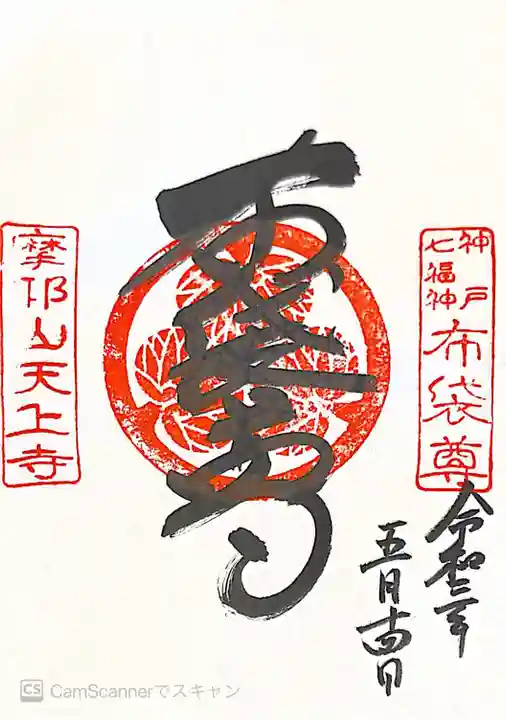 神戸
七福神
布袋尊
布袋尊
令和三年
五月十四日
摩耶山天上寺
CS CamScannerでスキャン